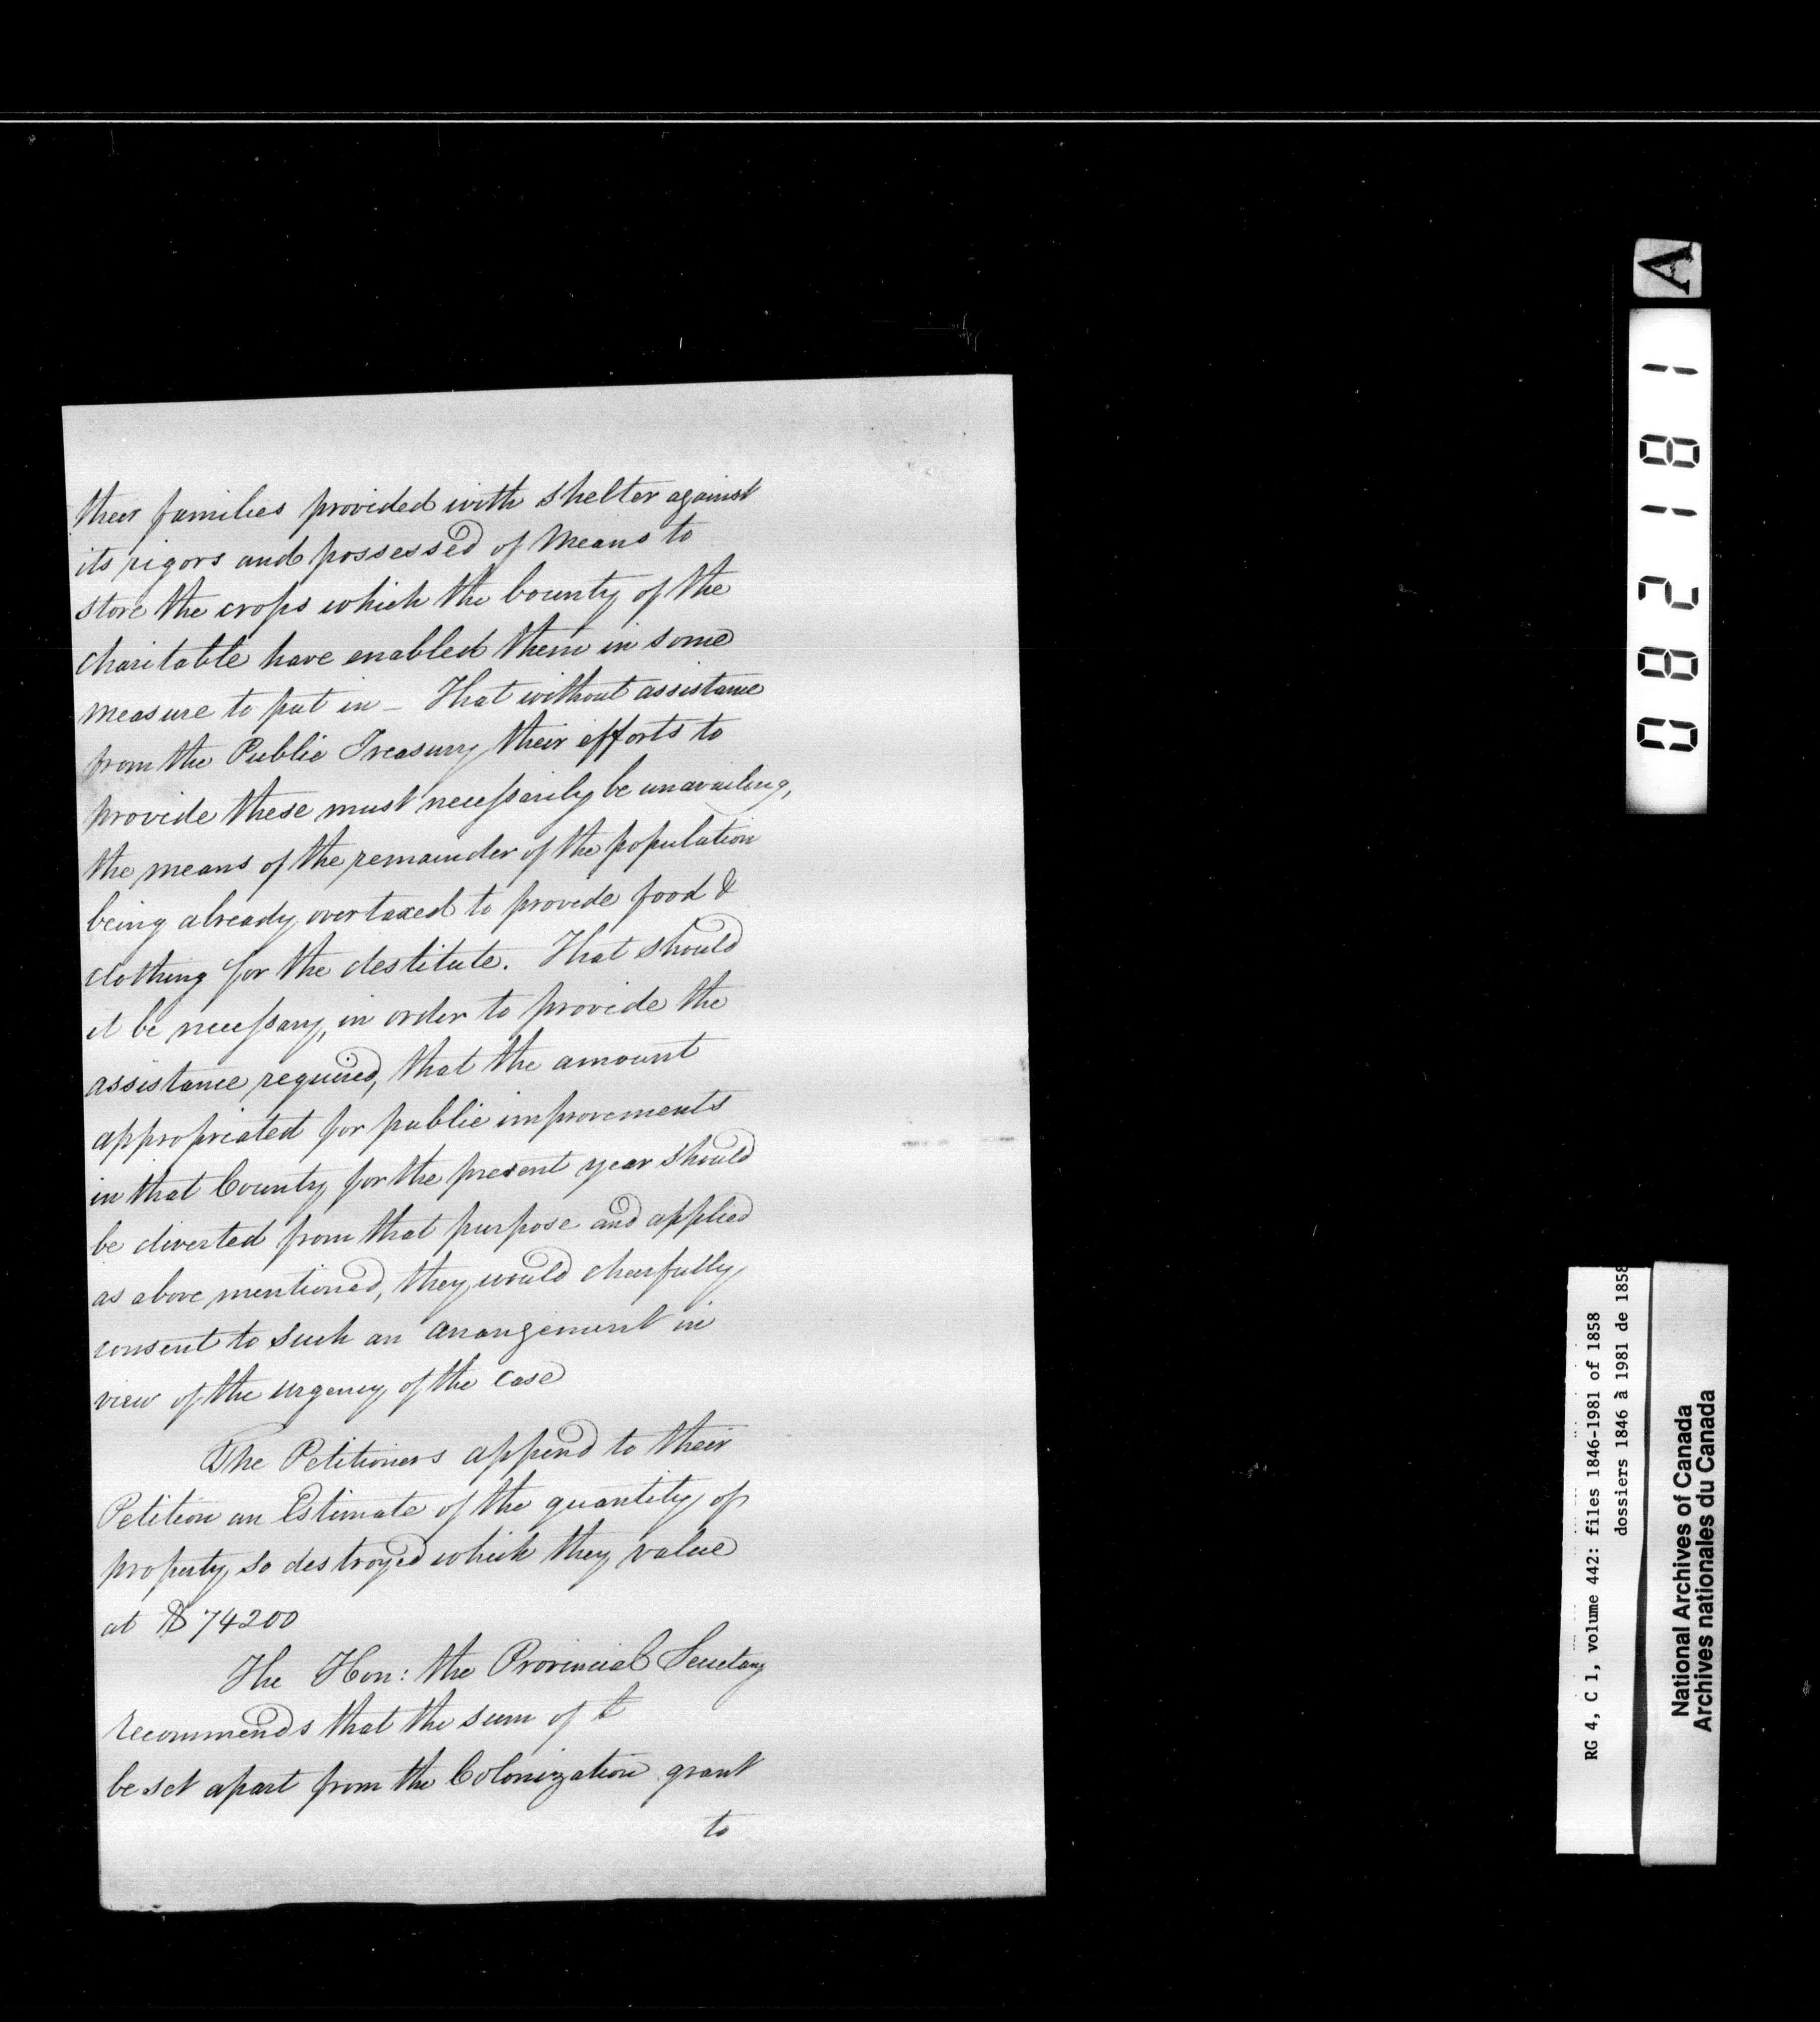 their families provided with shelter against
its rigors and possessed of means to
store the crops which the bounty of the
charitable have enabled them in some
measure to put in – That without assistance
from the Public Treasury their efforts to
provide these must necessarily be unavailing,
the means of the remainder of the population
being already overtaxed to provide food &
clothing for the destitute. That should
it be necessary, in order to provide the
assistance required, that the amount
appropriated for public improvements
in that County for the present year should
be diverted from that purpose and applied
as above mentioned, they would chearfully
consent to such an arrangement in
view of the urgency of the case
The Petitioners append to their
Petition an Estimate of the quantity of
property so destroyed which they value
at $ 74200
The Hon: the Provincial Secretary
recommends that the sum of £
be set apart from the Colonization grant
to
A
082181
RG 4, C 1, volume 442: files 1846-1981 of 1858
dossiers 1846 à 1981 de 1858
National Archives of Canada
Archives nationales du Canada